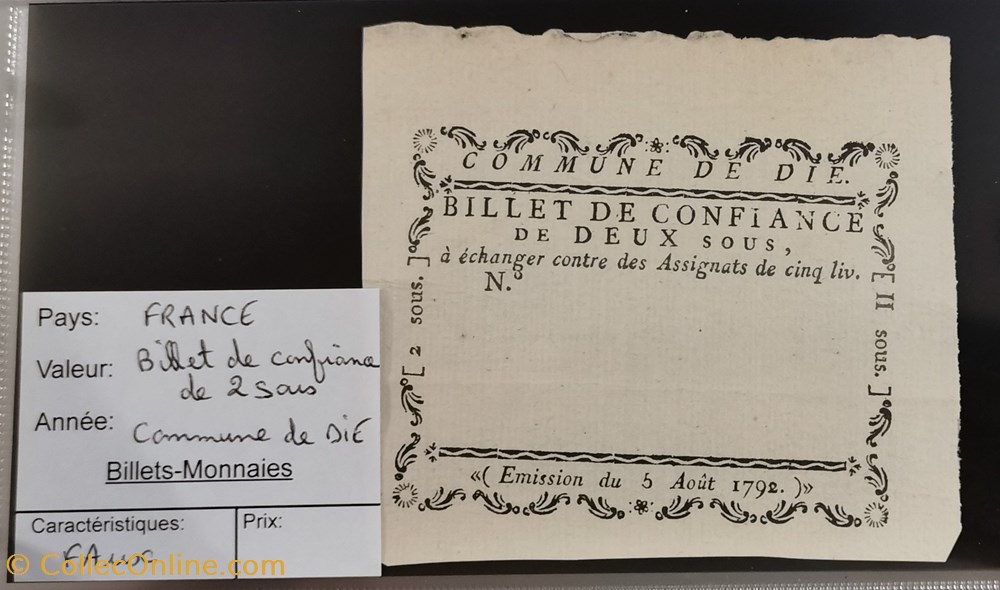 COMMUNE DE DIE.
BILLET DE CONFiANCE
DE DEUX SOUS,
à échanger contre des Assignats de cinq liv.
N.o
[ 2 sous. ]
[ II sous. ]
«( Emission du 5 Août 1792. )»
Pays: FRANCE
Valeur: Billet de confiance
de 2 sous
Année:
Commune de DIE
Billets-Monnaies
Caractéristiques:
Prix:
© CollecOnline.com